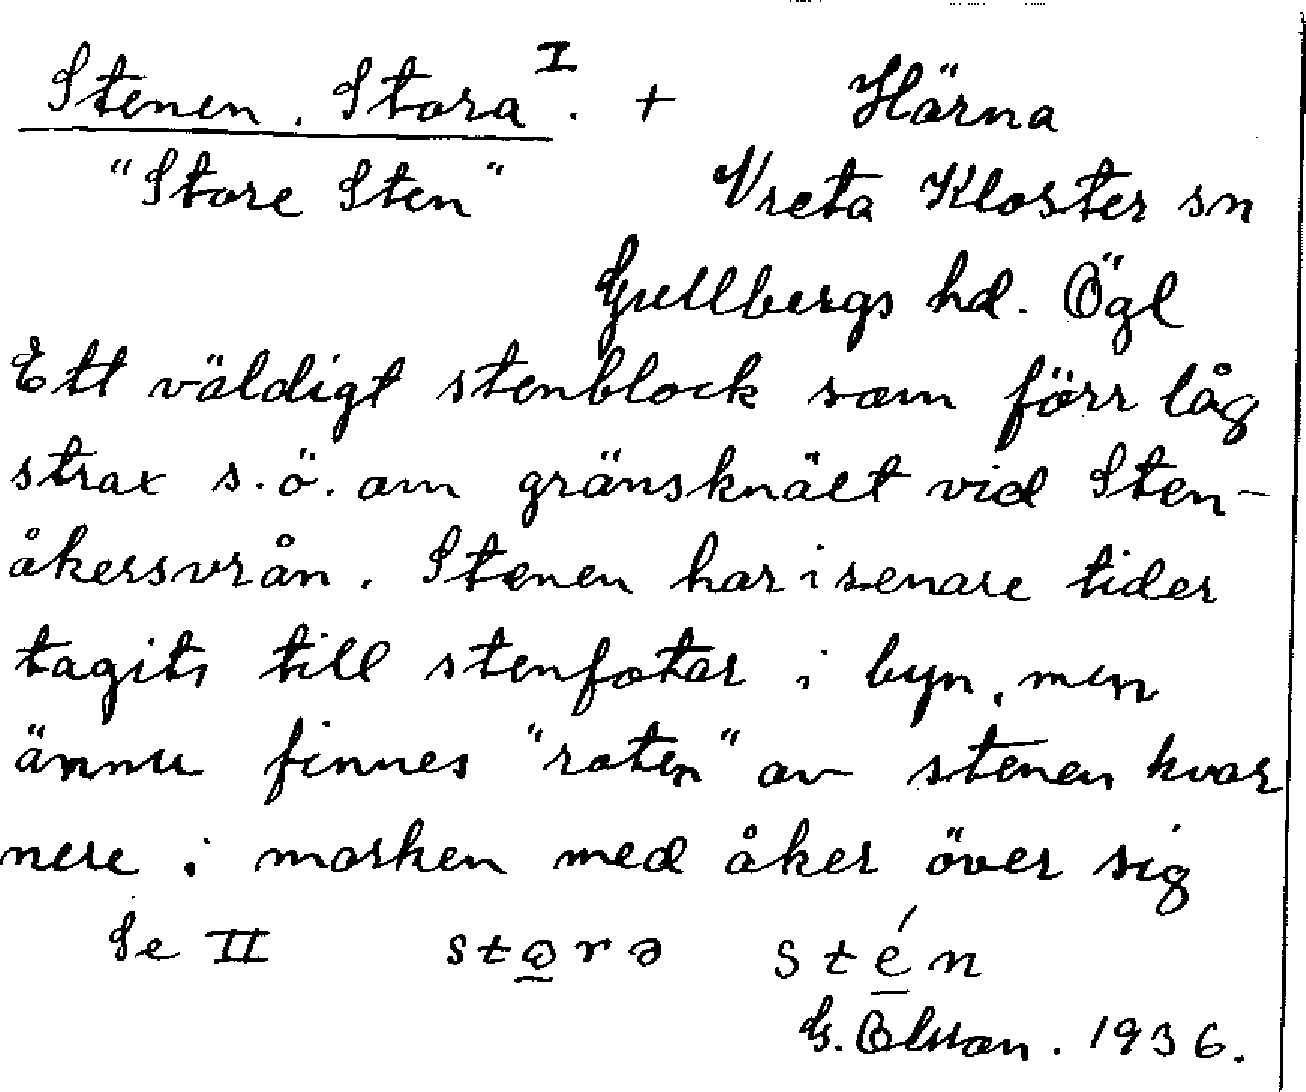 Stenen, Stora I. + Härna
"Store Sten" Vreta Kloster sn
Gullbergs hd. Ögl
Ett väldigt stenblock som förr låg
strax s.ö. om gränsknäet vid Sten-
åkersvrån. Stenen har i senare tider
tagits till stenfotar i byn, men
ännu finnes "roten" av stenen kvar
nere i marken med åker över sig
Se II stɷrə stén
G. Olsson. 1936.